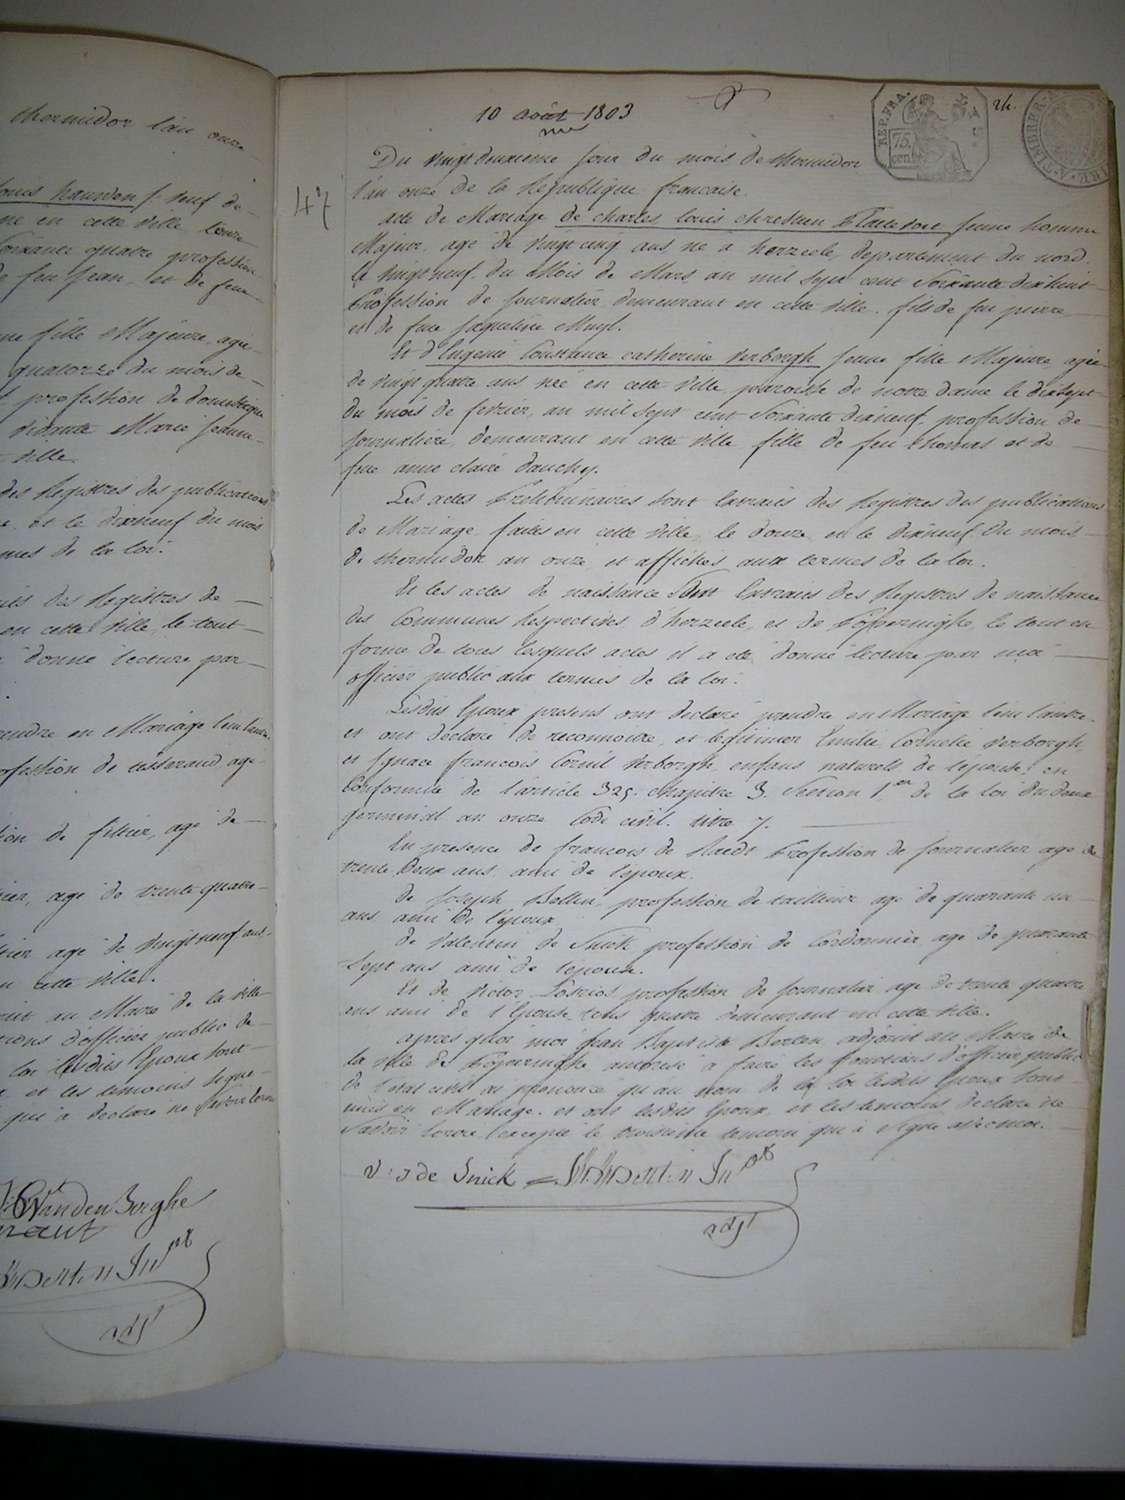 thermidor l'an onze
fille Majeure, agée
quatorze du mois de
profession de domestique
Marie Jeanne
ville
des Registres des publications
et le dixneuf du mois
termes de la loi.
des Registres de
en cette ville, le tout
donné lecture par
prendre en Mariage l'un l'autre
profession de tisserand, agé
agé de
agé de trente quatre
agé de vingt neuf ans
cette ville.
au Maire de la ville
d'officier public de
loi lesdits Epoux sont
et les temoins
qui a declaré ne savoir
Vanden Berghe
Berten
adjt
10 août 1803
24.
REP. FRA.
75 cent
47
Du vingt deuxieme jour du mois de thermidor
l'an onze de la Republique francaise.
acte de Mariage de charles louis chretien jeune homme
Majeur, agé de vingt cinq ans né à herzeele, departement du nord.
le vingt neuf du Mois de Mars an mil sept cent soixante dixhuit
Profession de journalier, demeurant en cette ville. fils de feu pierre
et de feue jaqueline
Et d'Eugenie Constance catherine verborgh jeune fille Majeure, agée
de vingt quatre ans née en cette ville, paroisse de notre dame le dixsept
du mois de fevrier, an mil sept cent soixante dixneuf, profession de
journaliere, demeurant en cette ville fille de feu thomas et de
feue anne claire dauchy.
Les actes Preliminaires sont Extraits des Registres des publications
de Mariage faites en cette ville, le douze et le dixneuf du mois
de thermidor an onze et affichés aux termes de la loi.
Et les actes de naissance sont Extraits des Registres de naissance
des Communes Respectives d'herzeele, et de Poperinghe, le tout en
forme de tous lesquels actes il a été donné lecture par moi
officier public aux termes de la loi.
Lesdits Epoux presens ont declaré prendre en Mariage l'un l'autre.
et ont declaré de reconnoitre, et legitimer Emilie Cornelie verborgh
et Ignace francois Corneil verborgh enfans naturels de l'epouse, en
Conformité de l'article 325. chapitre 3. Section 1er de la loi du deux
germinal an onze Code civil. titre 7.
En presence de francois de Profession de journalier agé de
trente deux ans, ami de l'epoux.
de Joseph Bellin profession de tailleur agé de quarante un
ans ami de l'epoux
de Valentin de Snick profession de Cordonnier agé de quarante
sept ans ami de l'epouse.
Et de victor profession de journalier agé de trente quatre
ans ami de l'Epouse tous quatre demeurant en cette ville.
apres quoi moi Jean Baptiste Berten adjoint au Maire de
la ville de Poperinghe autorisé à faire les fonctions d'officier public
de l'etat civil ai prononcé qu'au nom de la loi lesdits Epoux sont
unis en Mariage. et ont lesdits Epoux, et les temoins declaré ne
savoir Ecrire excepté le troisieme temoin qui a signé avec moi.
V: J de Snick Berten
adjt